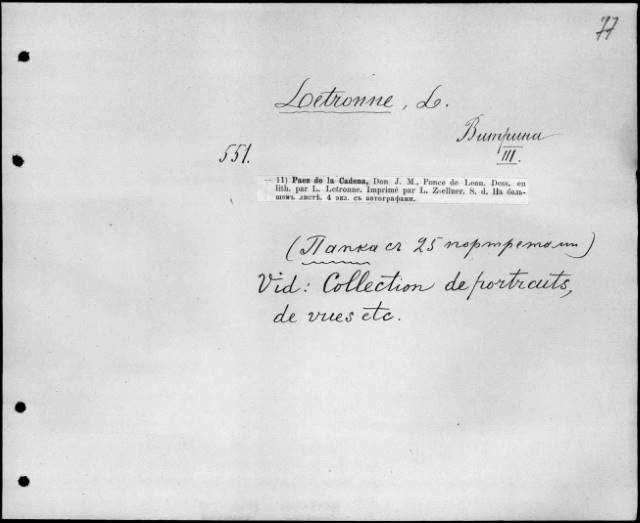 77
Letronne, L.
Витрина
III.
551.
11) Paez de la Cadena, Don J. M., Ponce de Leon. Dess. en
lith. par L. Letronne. Imprimé par L. Zœllner. S. d. На боль-
шомъ листѣ. 4 экз. съ автографами.
(Папка съ 25 портретами)
Vid: Collection de portraits,
de vues etc.